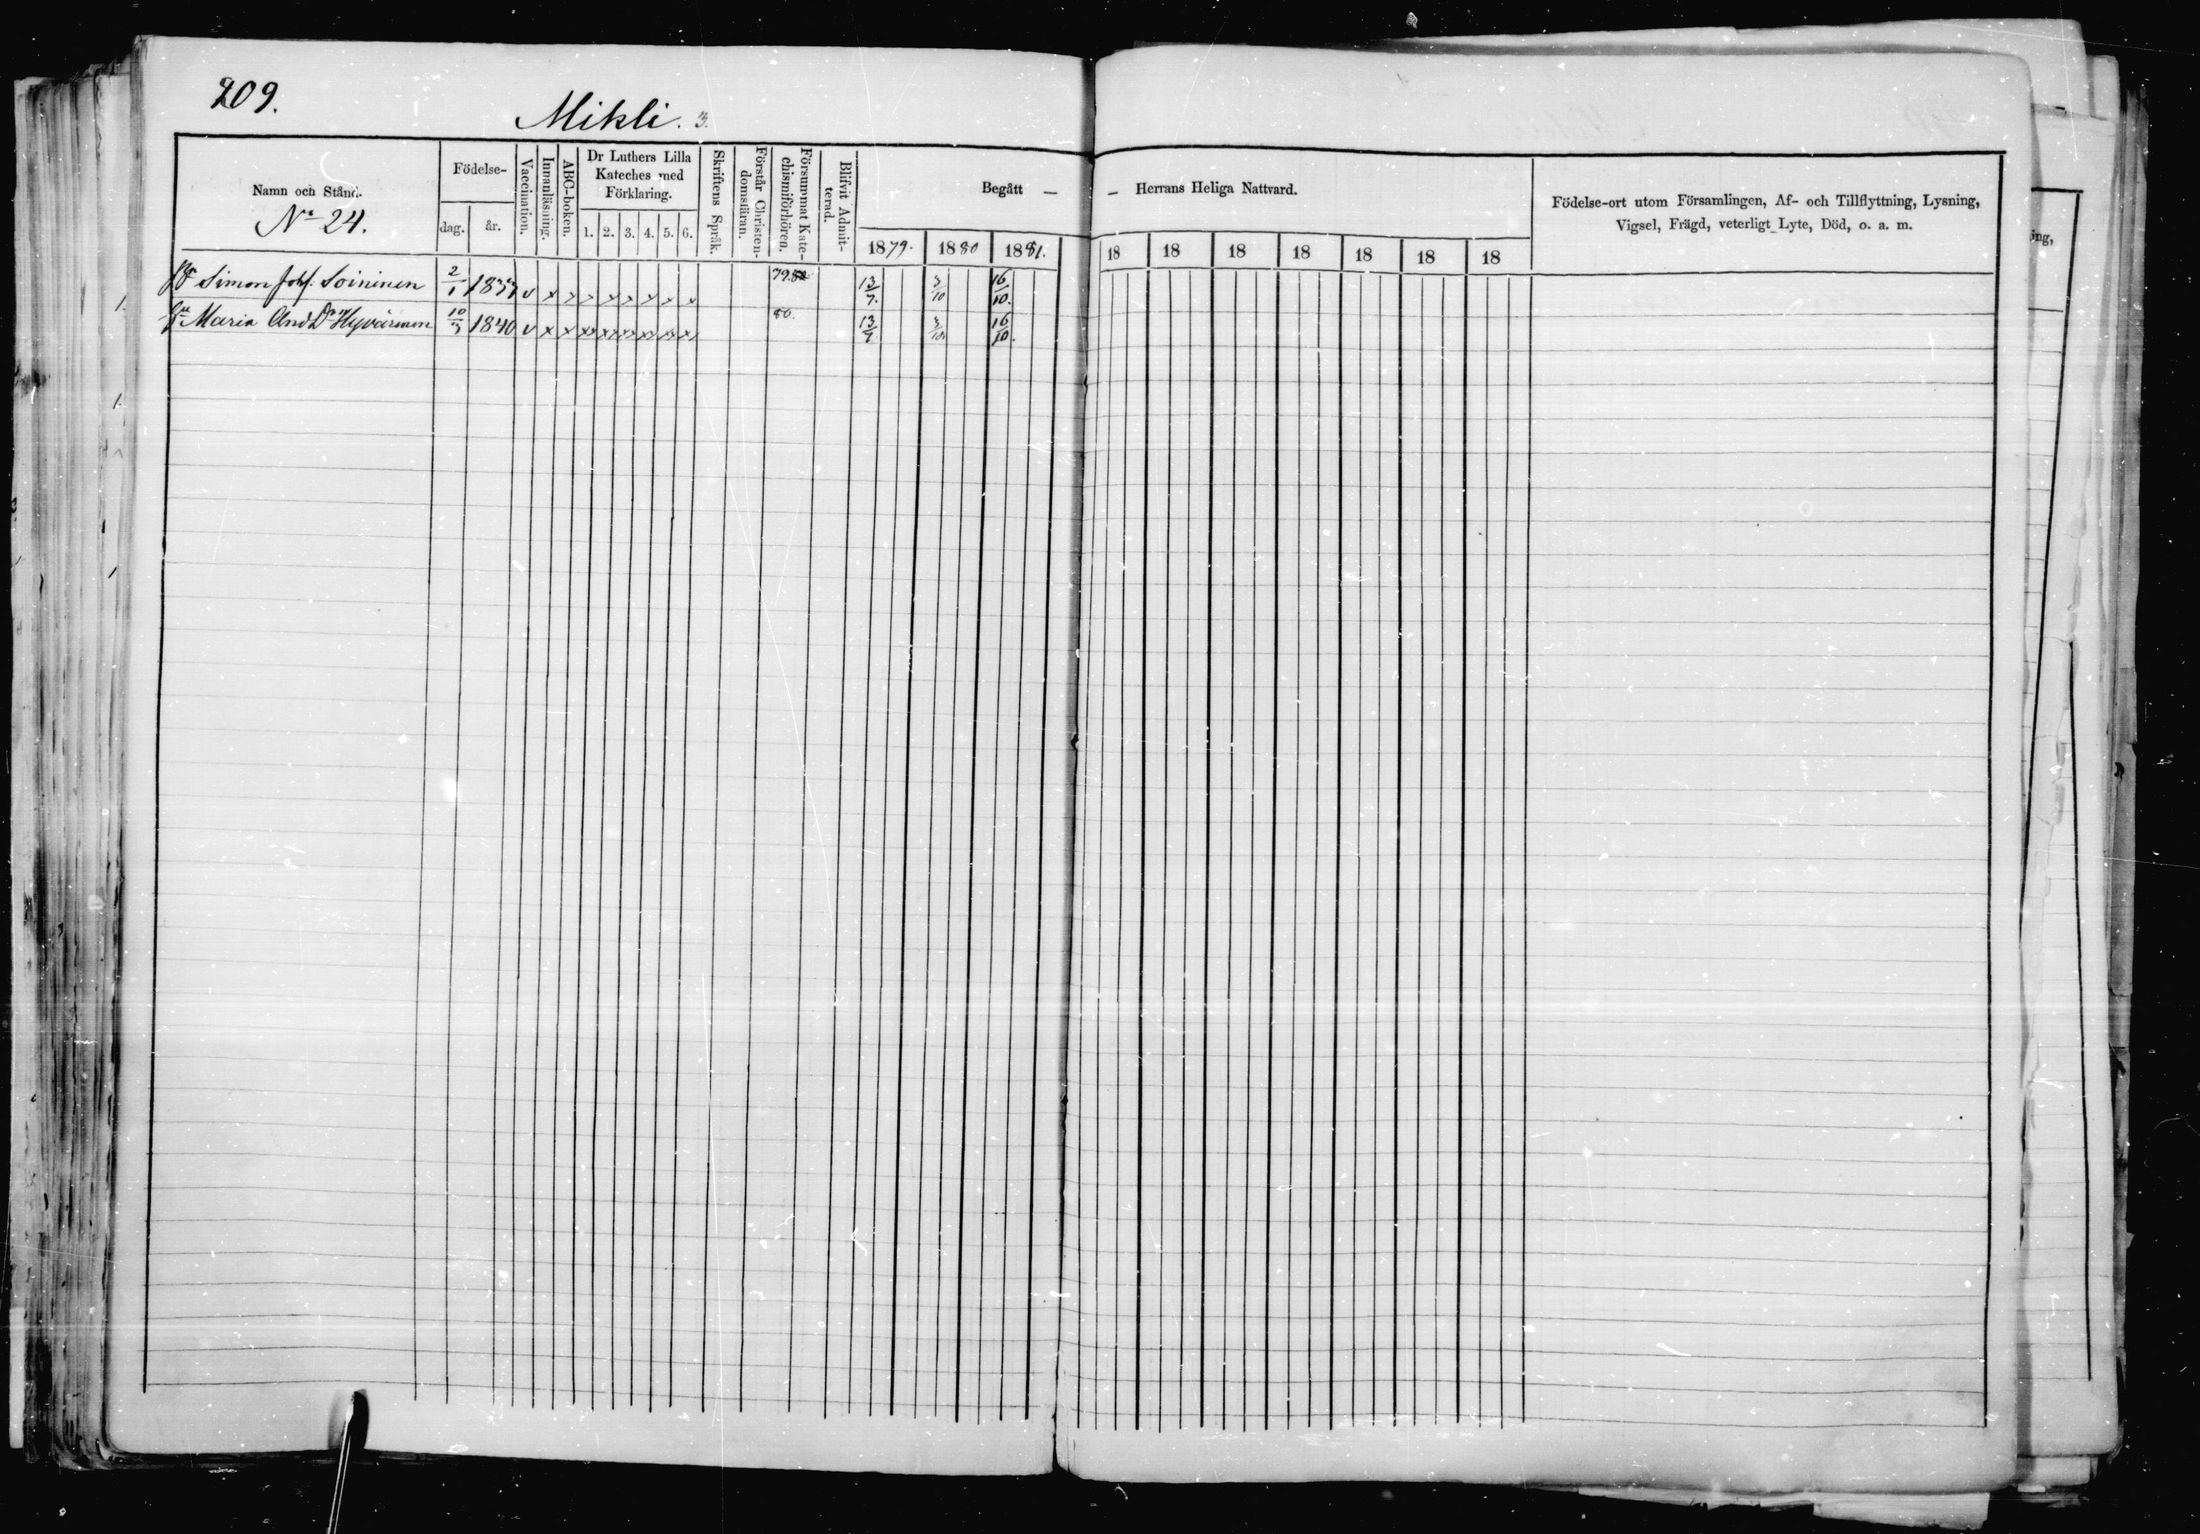 209.
Mikli. 3.
Namn och Stånd.
No 24.
Födelse-
dag. år.
Vaccination.
Innanläsning.
ABC-boken.
Dr Luthers Lilla
Kateches med
Förklaring.
1. 2. 3. 4. 5. 6.
Skriftens Språk.
Förstår Christen-
domsläran.
Försummat Kate-
chismiförhören.
Blifvit Admit-
terad.
Begått — — Herrans Heliga Nattvard.
1879. 1880 1881. 18 18 18 18 18 18 18
Födelse-ort utom Församlingen, Af- och Tillflyttning, Lysning,
Vigsel, Frägd, veterligt Lyte, Död, o. a. m.
ing,
Simon Joh. Soininen 2/1 v x x x x x x x x 79. 13/7. 3/10 16/10.
Maria And Dr Hyvärinen 10/3 1840 v x x xx xx xx xx xx xx 80. 13/7 3/10 16/10.